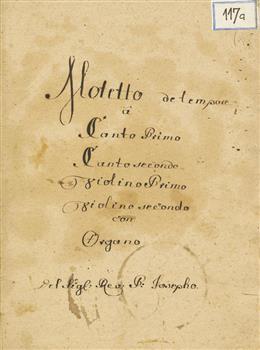 117a
Motetto de tempore
â
Canto Primo
Canto secondo
Violino Primo
violino secondo
con
Organo
Del Sigl: Rev: P: Josepho.